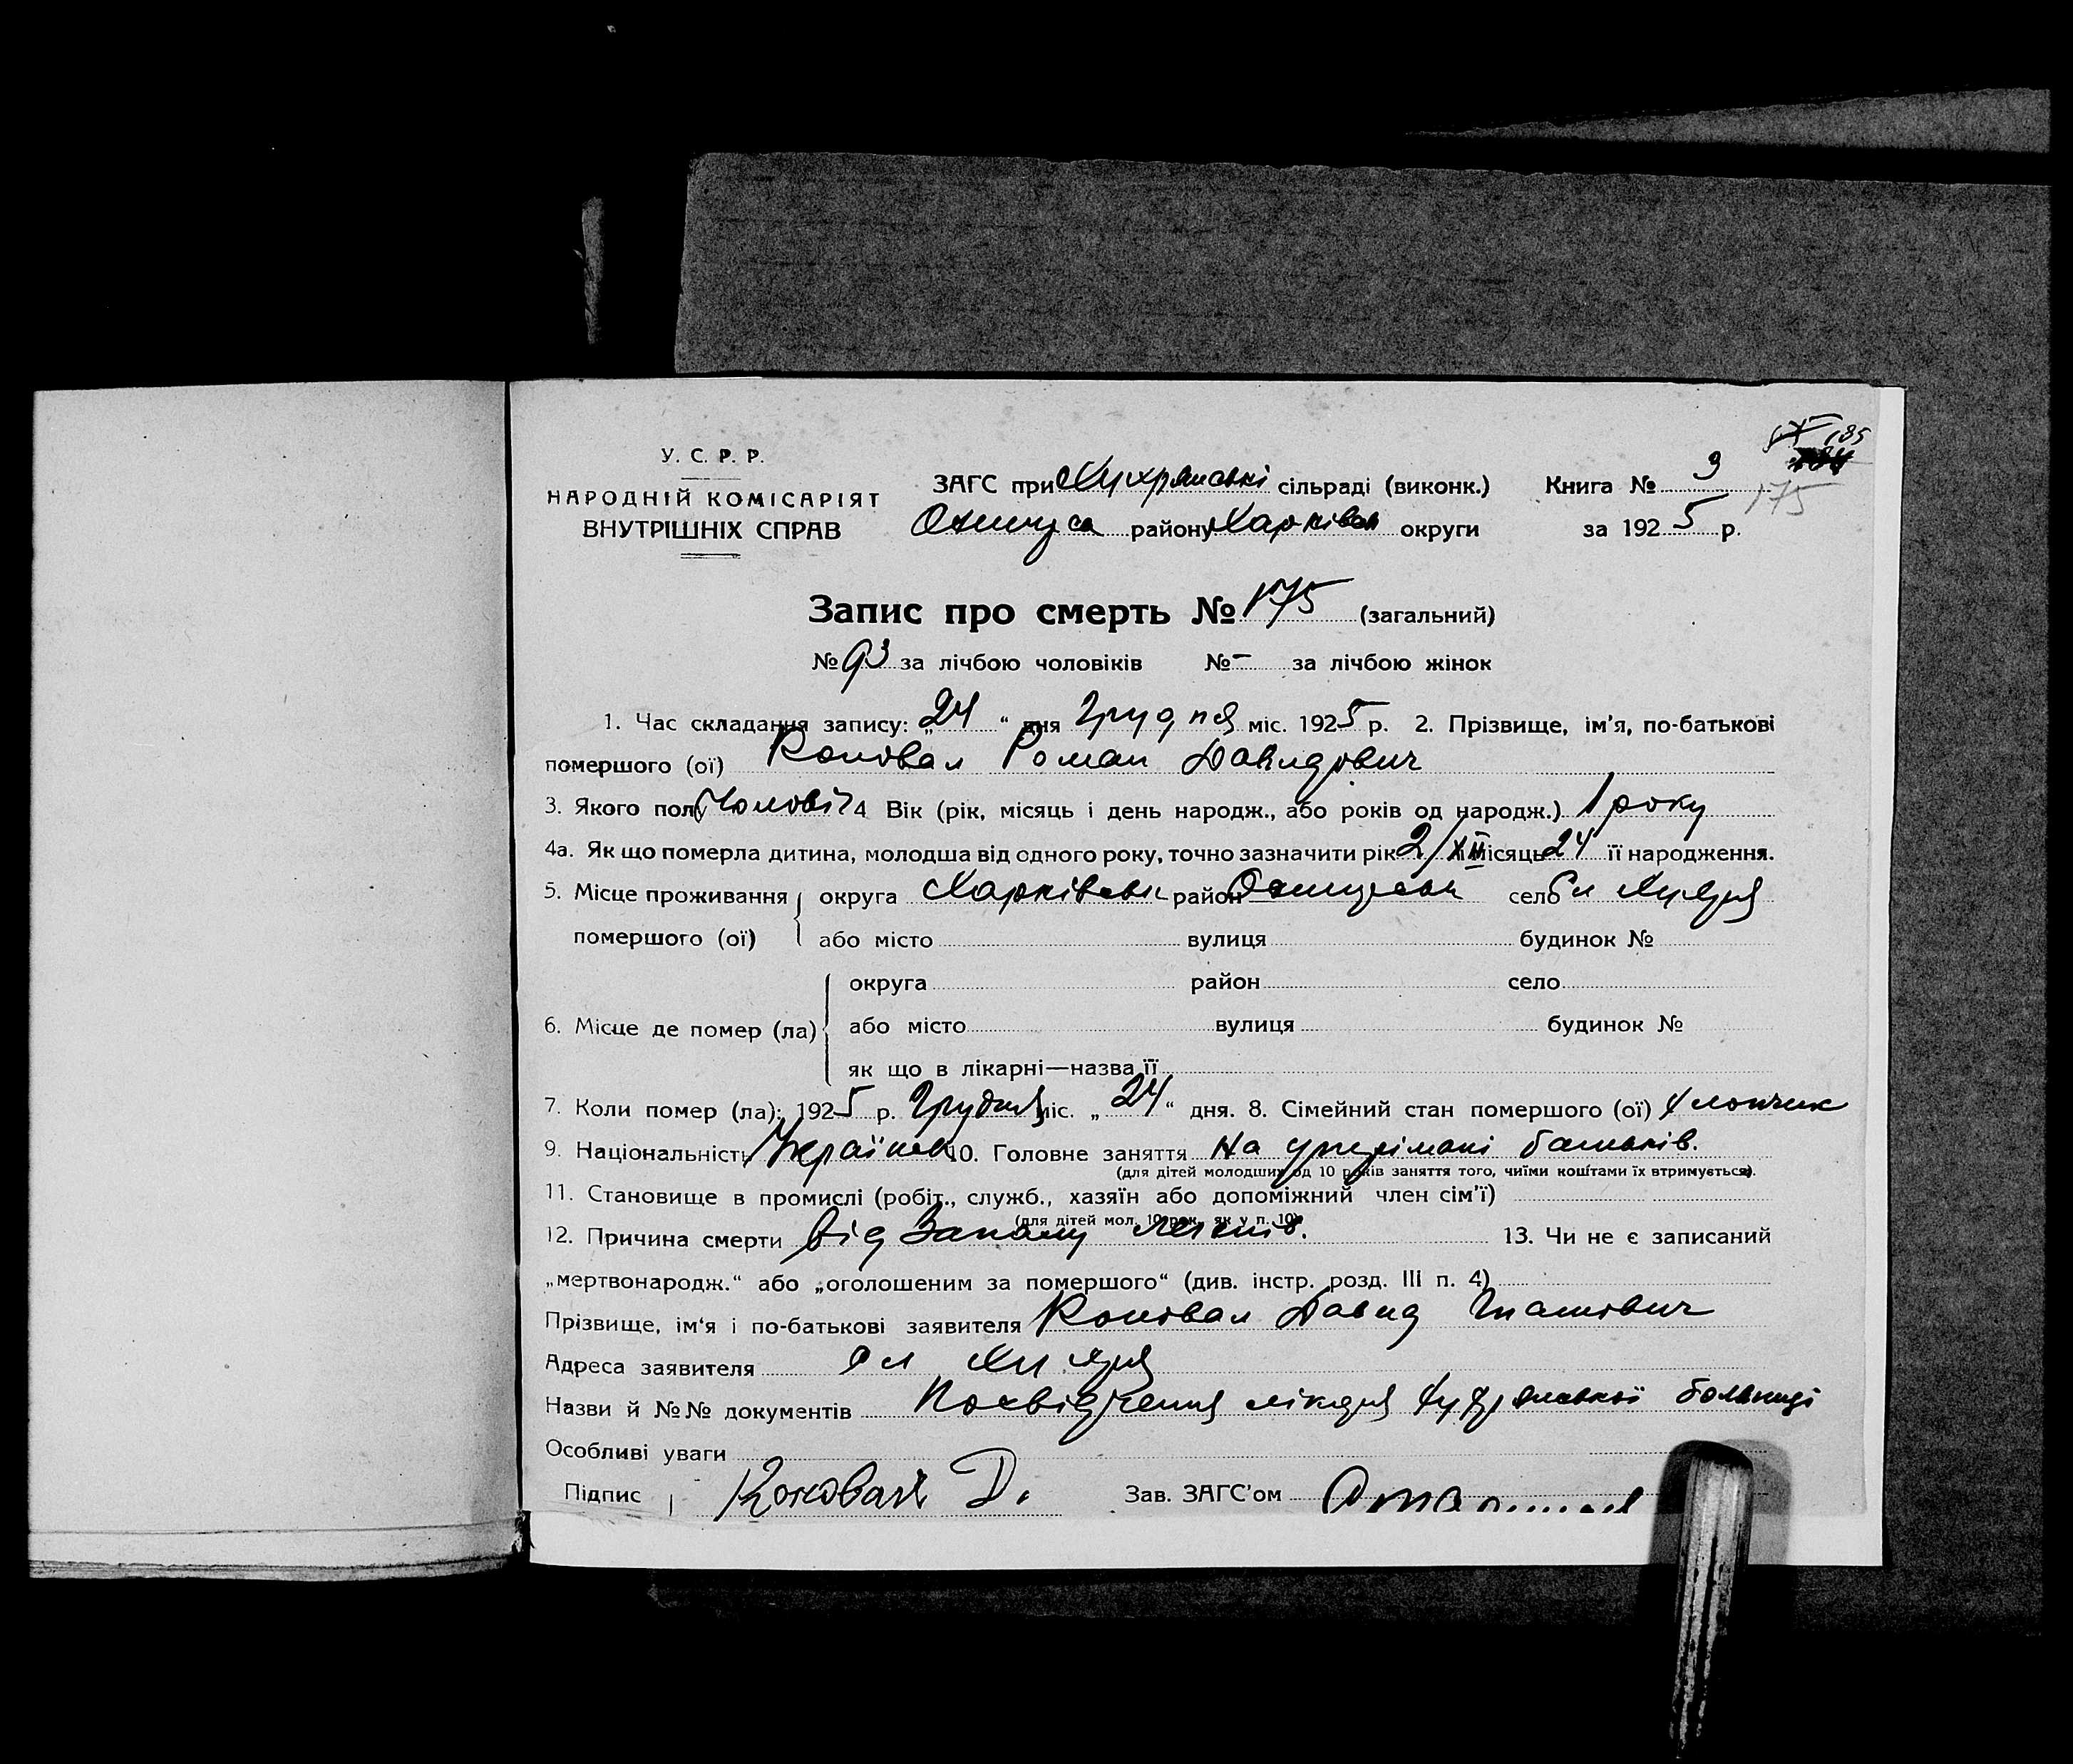 185
У. С. Р. Р.
НАРОДНІЙ КОМІСАРІЯТ
ВНУТРІШНІХ СПРАВ
ЗАГС при сільраді (виконк.) Книга № 3
175
району Харківськ округи за 1925 р.
Запис про смерть № 175 (загальний)
№ 93 за лічбою чоловіків № - за лічбою жінок
1. Час складання запису: „24“ дня Грудня міс. 1925 р. 2. Прізвище, ім'я, по-батькові
помершого (ої) Коновал Роман Давидович
3. Якого полу Чоловіч 4 Вік (рік, місяць і день народж., або років од народж.) 1 року
4а. Як що померла дитина, молодша від одного року, точно зазначити рік 2/XII місяць 24 її народження.
5. Місце проживання округа Харківськ район село
помершого (ої) або місто вулиця будинок №
округа район село
6. Місце де помер (ла) або місто вулиця будинок №
як що в лікарні—назва її
7. Коли помер (ла): 1925 р. Грудня міс. „24“ дня. 8. Сімейний стан помершого (ої) хлопчик
9. Національність Українец 10. Головне заняття На утрімані батьків.
(для дітей молодших од 10 років заняття того, чиїми коштами їх втримується).
11. Становище в промислі (робіт., служб., хазяїн або допоміжний член сім'ї)
(для дітей мол. 10 рок. як у п. 10)
12. Причина смерти від Запалу легкнів. 13. Чи не є записаний
„мертвонародж.“ або „оголошеним за помершого“ (див. інстр. розд. III п. 4)
Прізвище, ім'я і по-батькові заявителя Коновал Давид Гнатович
Адреса заявителя
Назви й №№ документів Посвідчення лікаря больниці
Особливі уваги
Підпис Коновал Д. Зав. ЗАГС'ом